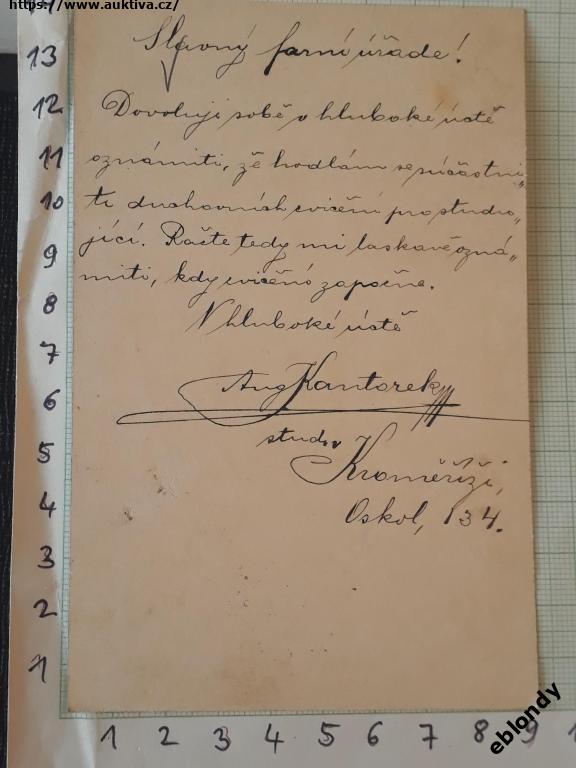 https://www.auktiva.cz/
Slavný farní úřade!
Dovoluji sobě v hluboké úctě
oznámiti, že hodlám se súčastni„
ti duchovních cvičení pro studu„
jící. Račte tedy mi laskavě ozná„
miti, kdy cvičení započne.
V hluboké úctě
Aug Kantorek
stud. v
Kroměříži,
Oskol, 134.
13
12
11
10
9
8
7
6
5
4
3
2
1
1 2 3 4 5 6 7 8 9
eblondy